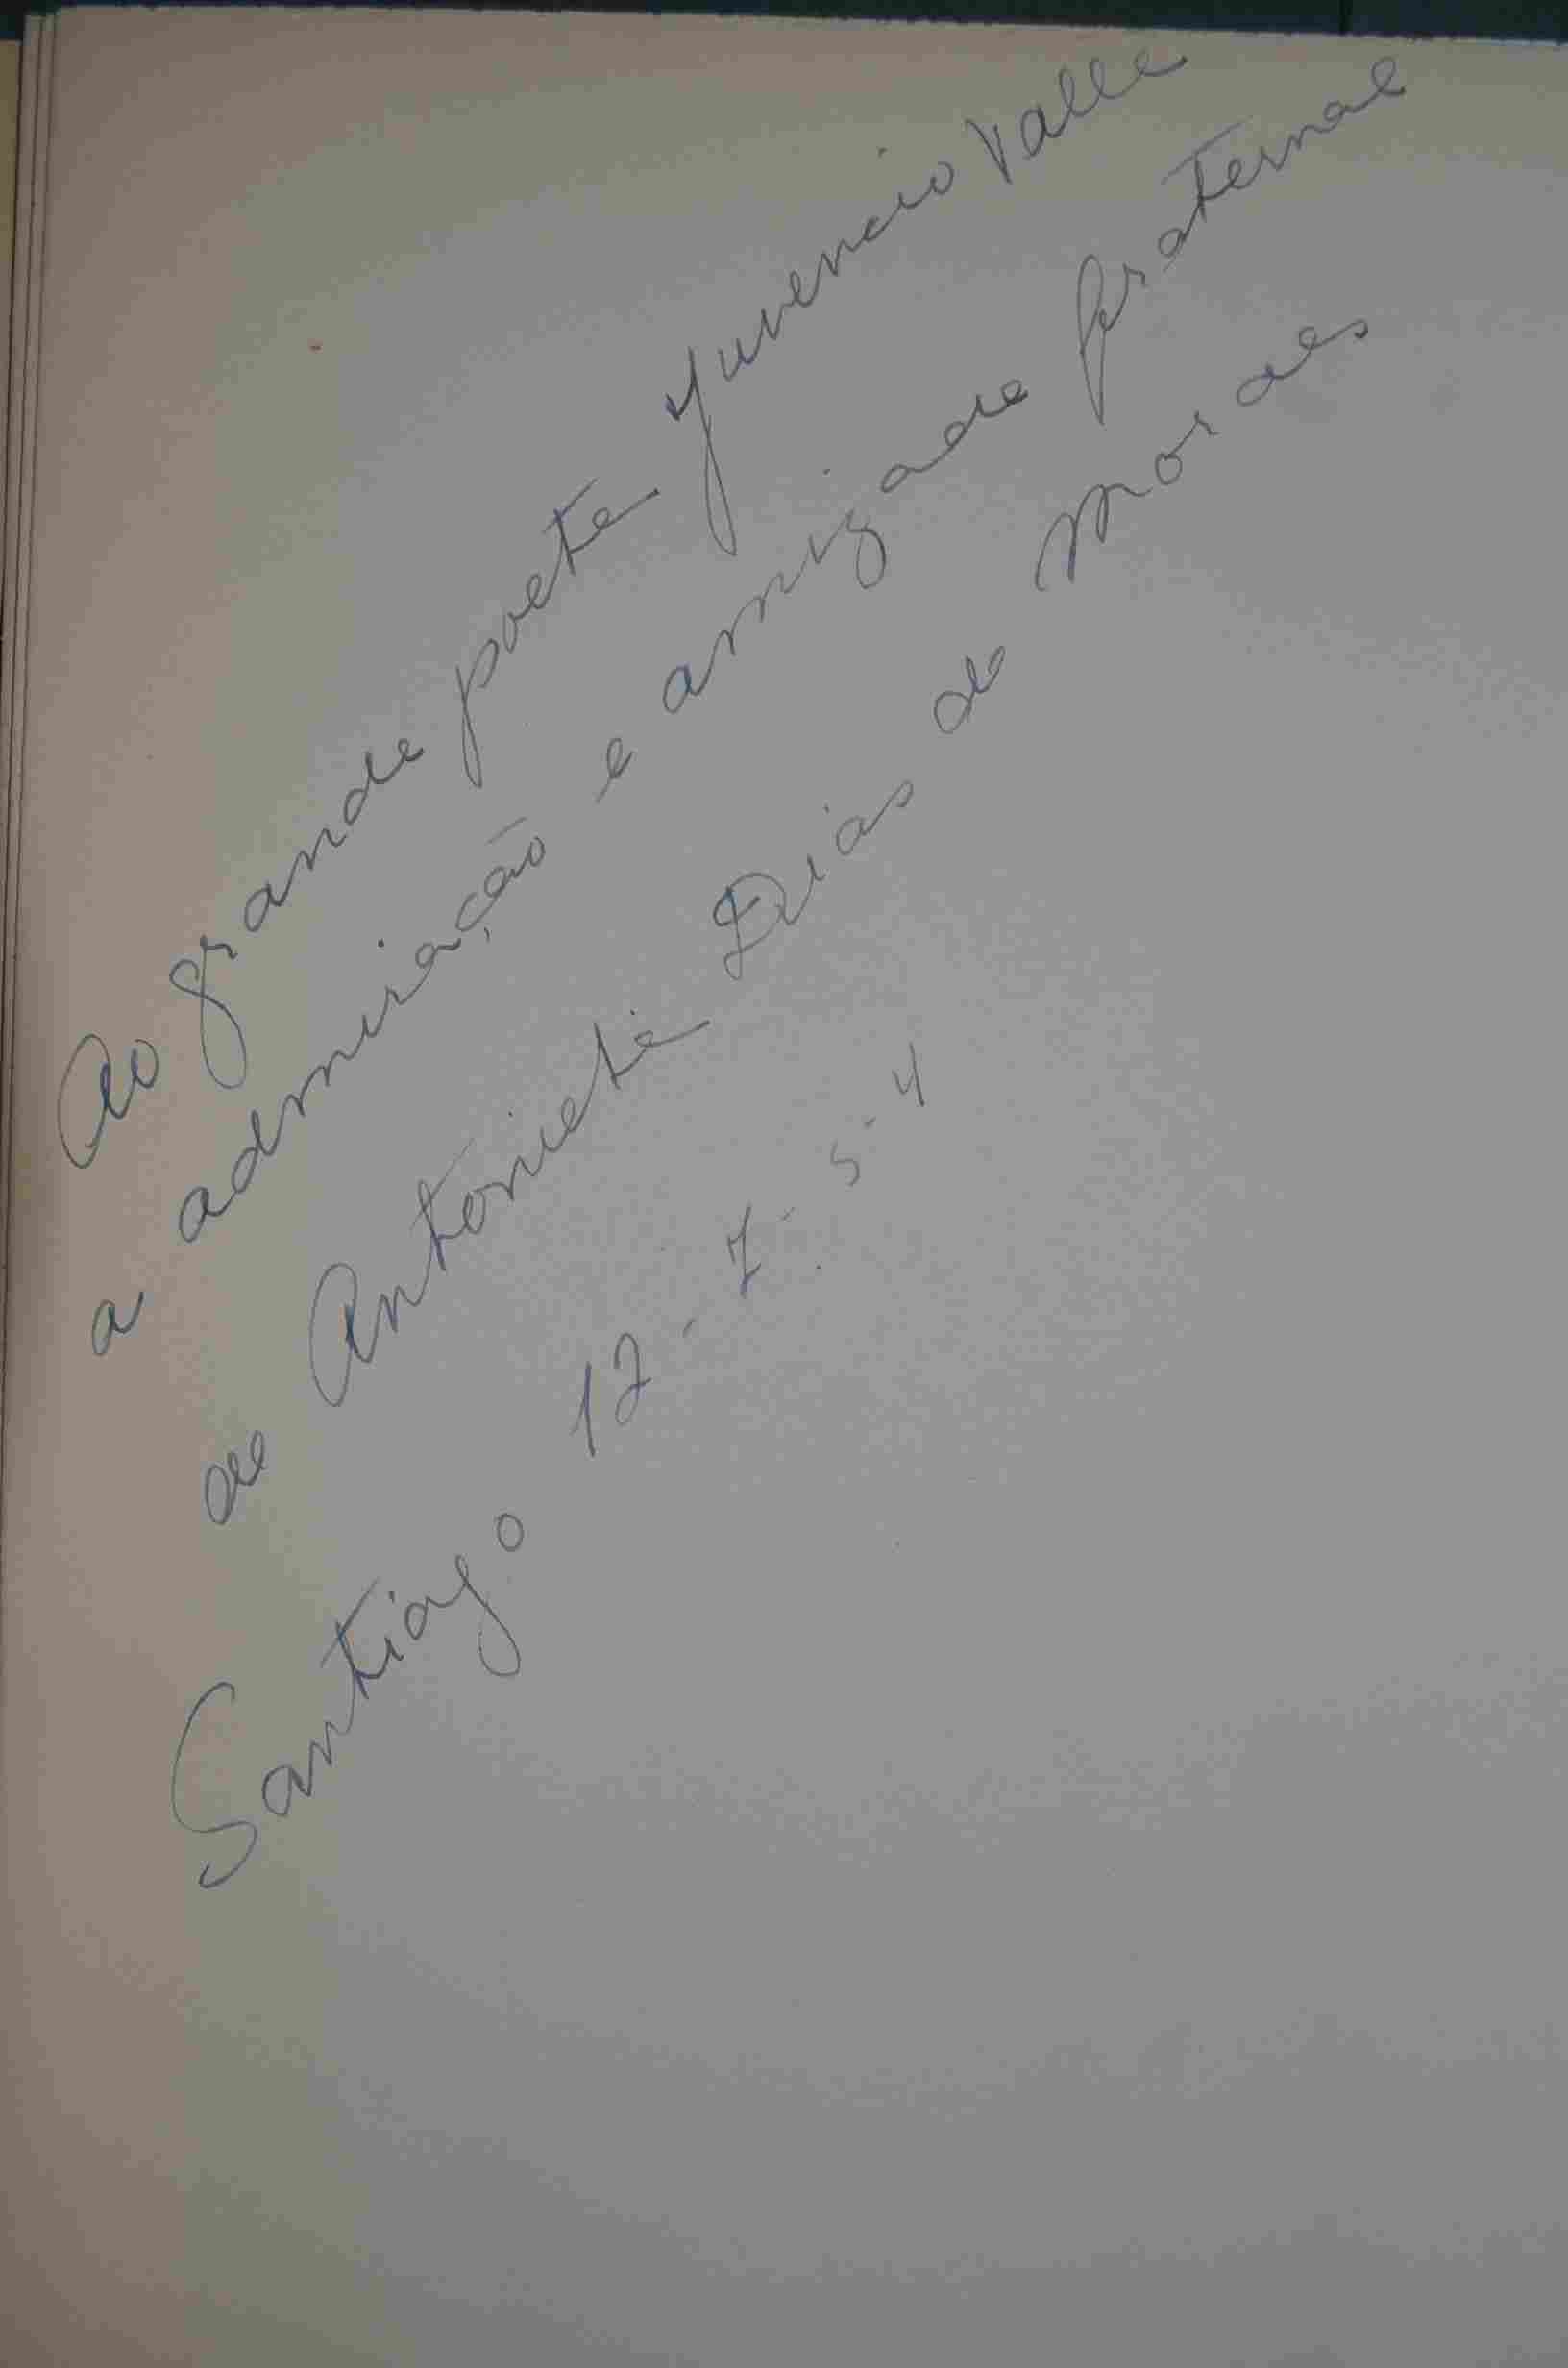 Ao grande poeta Juvencio Valle
a admiração e amizade fraternal
de Antonieta Dias de Moraes
Santiago 12-7-54